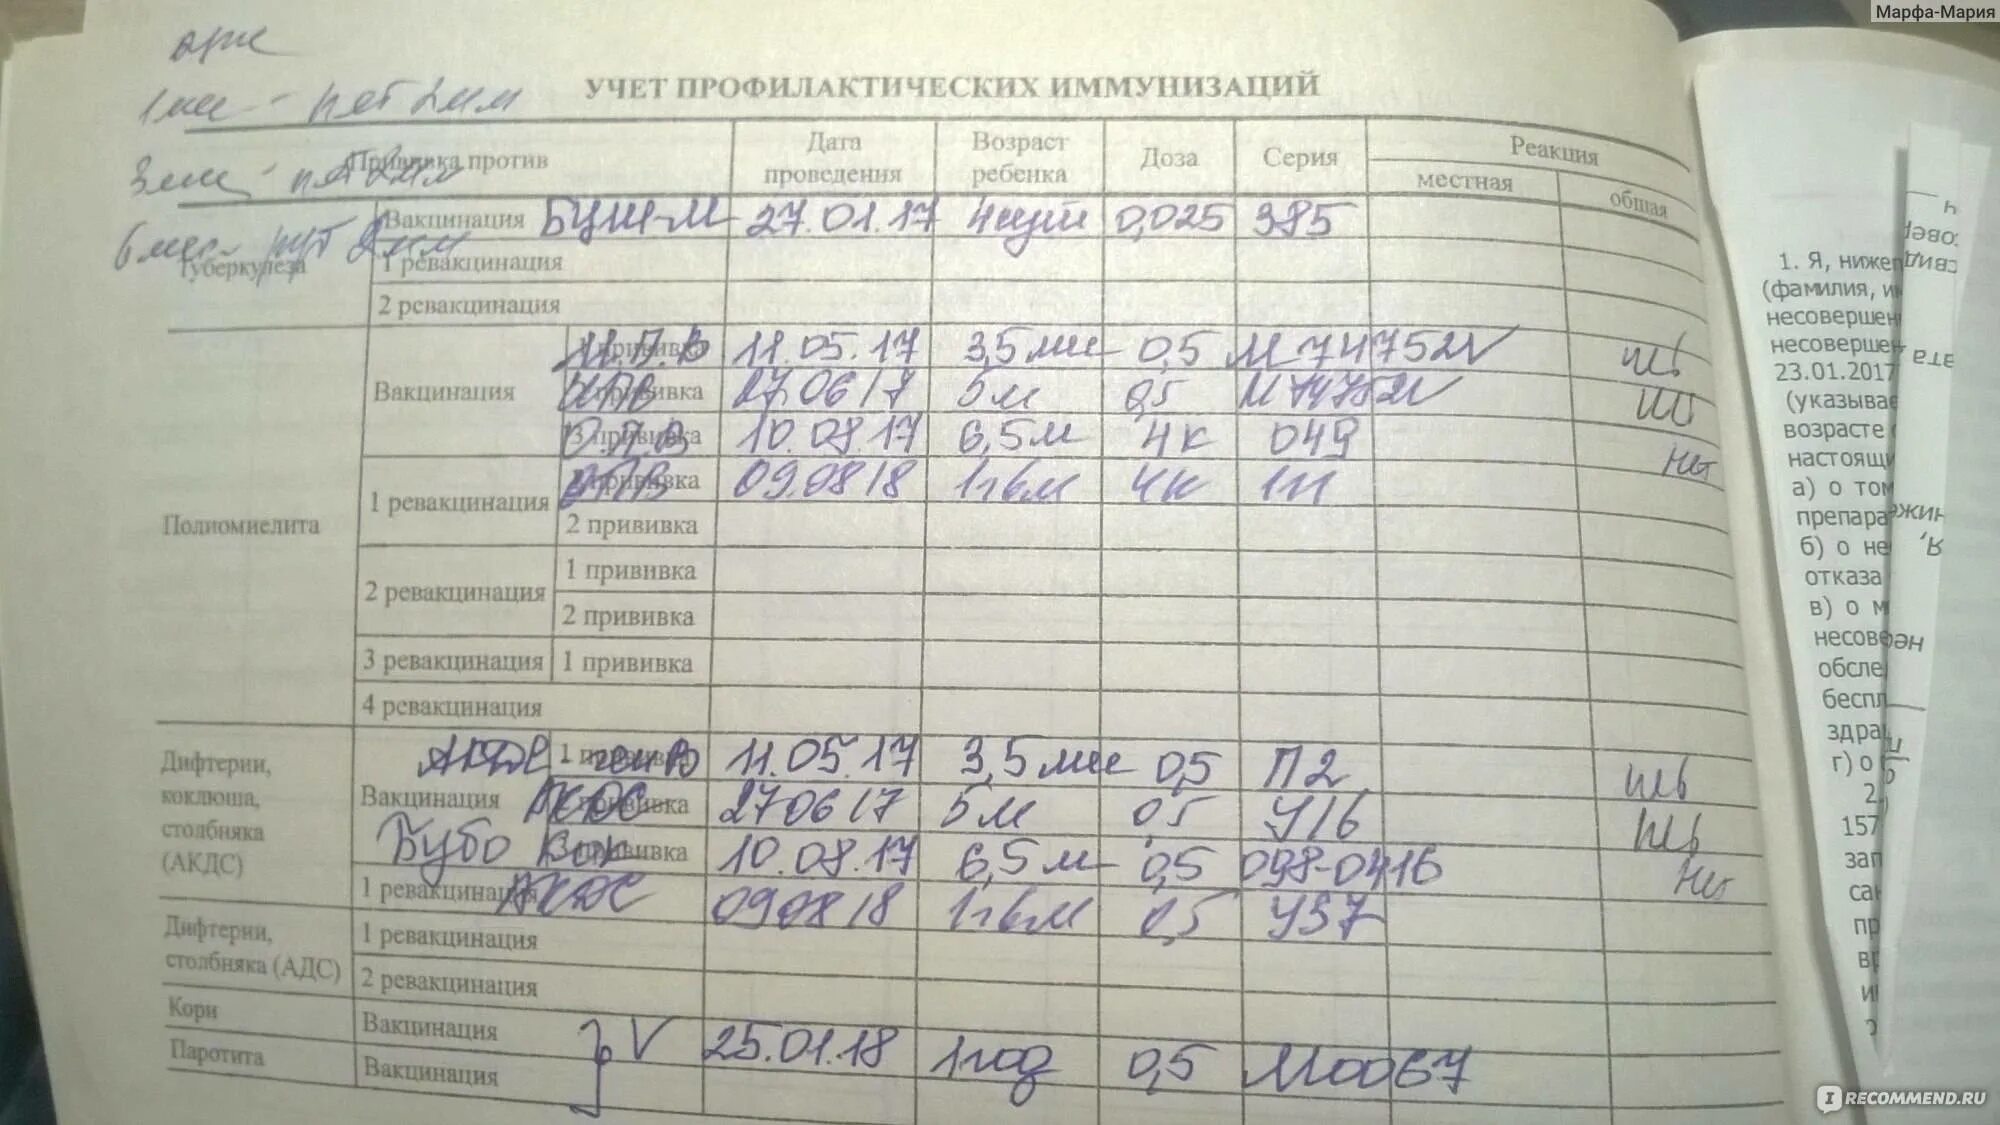 Марфа-Мария
УЧЕТ ПРОФИЛАКТИЧЕСКИХ ИММУНИЗАЦИЙ
Прививка против Дата проведения Возраст ребенка Доза Серия Реакция
местная общая
Туберкулеза Вакцинация БЦЖ-М 27.01.17 0,025 395
1 ревакцинация
2 ревакцинация
Полиомиелита Вакцинация 1 прививка 11.05.17 3,5 мес 0,5 M74752V
прививка 27.06 17 5 м 0,5 M74752V
3 прививка 10.08.17 6,5 м 4 к 049 нет
1 ревакцинация прививка 09.08 18 1г6м 4к
2 прививка
2 ревакцинация 1 прививка
2 прививка
3 ревакцинация 1 прививка
4 ревакцинация
Дифтерии, коклюша, столбняка (АКДС) Вакцинация АКДС 1 прививка 11.05.17 3,5 мес 0,5 П2
АКДС прививка 27 06 17 5 м 0,5 У16
Бубо Кок 3 прививка 10.08.17 6,5 м 0,5 098-0416 нет
1 ревакцинация АКДС 09 08 18 1г6м 0,5 У37
Дифтерии, столбняка (АДС) 1 ревакцинация
2 ревакцинация
Кори Вакцинация V 25.01.18 1 год 0,5 M0067
Паротита Вакцинация
1. Я, нижеп
(фамилия, и
несовершен
несовершен
23.01.2017
(указывае
возрасте
настоящи
а) о том
препара
б) о не
отказа
в) о м
несовер
обсле
беспл
здра
г) о
2.
157
зап
са
пр
в
и
I RECOMMEND.RU